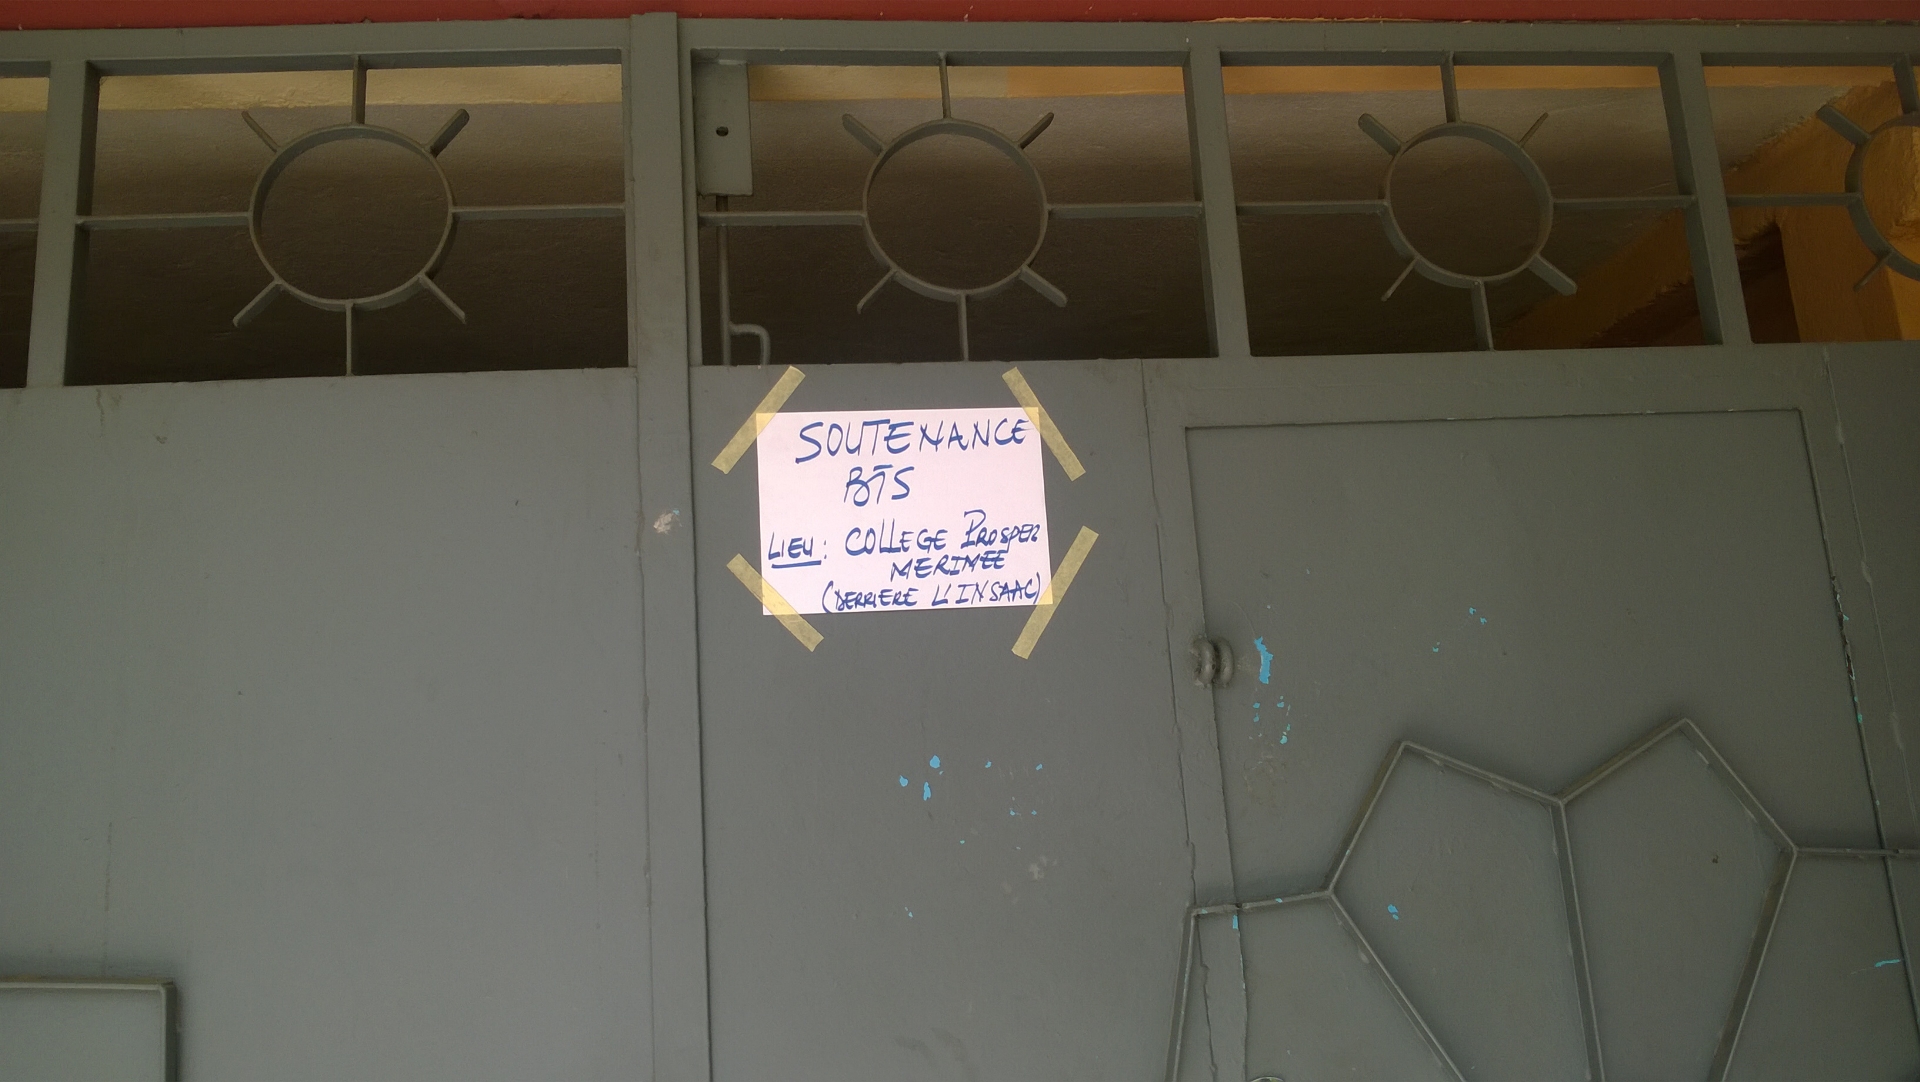 SOUTENANCE
BTS
LIEU: COLLEGE PROSPER
MERIMEE
(DERRIERE L'INSAAC)